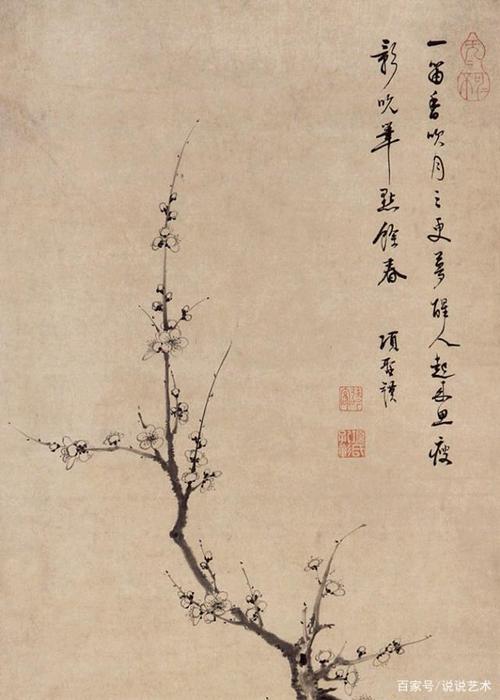 一笛香吹月三更夢醒人起來思瘦
影吮筆點餘春 項聖謨
百家号/说说艺术